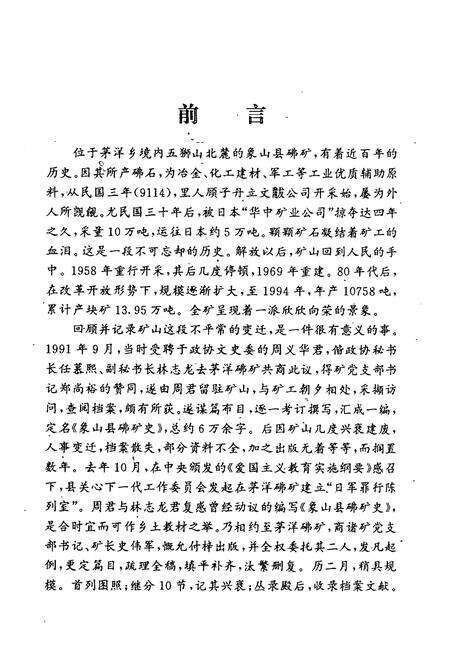 前言
位于茅洋乡境内五狮山北麓的象山县砩矿,有着近百年的
历史。因其所产砩石,为冶金、化工建材、军工等工业优质辅助原
料,从民国三年(9114),里人顾子丹立文黻公司开采始,屡为外
人所觊觎。尤民国三十年后,被日本“华中矿业公司”掠夺达四年
之久,采量10万吨,运往日本约5万吨。颗颗矿石凝结着矿工的
血泪。这是一段不可忘却的历史。解放以后,矿山回到人民的手
中。1958年重行开采,其后几度停顿,1969年重建。80年代后,
在改革开放形势下,规模逐渐扩大,至1994年,年产10758吨,
累计产块矿13.95万吨。全矿呈现着一派欣欣向荣的景象。
回顾并记录矿山这段不平常的变迁,是一件很有意义的事。
1991年9月,当时受聘于政协文史委的周义华君,偕政协秘书
长任慕熙、副秘书长林志龙去茅洋砩矿共商此议,得矿党支部书
记郑尚裕的赞同,遂由周君留驻矿山,与矿工朝夕相处,采撷访
问,查阅档案,颇有所获。遂谋篇布目,逐一考订撰写,汇成一编,
定名《象山县砩矿史》,总约6万余字。后因矿山几度兴衰建废,
人事变迁,档案散失,部分资料不全,加之出版无着等等,而搁置
数年。去年10月,在中央颁发的《爱国主义教育实施纲要》感召
下,县关心下一代工作委员会发起在茅洋砩矿建立“日军罪行陈
列室”。周君与林志龙君复感曾经动议的编写《象山县砩矿史》,
是合时宜而可作乡土教材之举。乃相约至茅洋砩矿,商诸矿党支
部书记、矿长史伟军,慨允付梓出版,并全权委托其二人,发凡起
例,更定篇目,疏理全稿,填平补齐,汰繁删复。历二月,稍具规
模。首列图照;继分10节,记其兴衰;丛录殿后,收录档案文献。